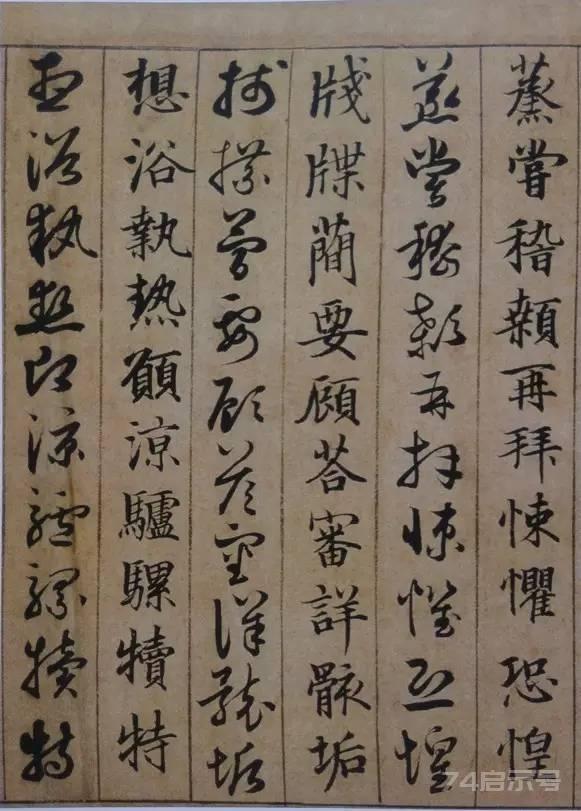 蒸嘗稽顙再拜悚懼恐惶
蒸嘗稽顙再拜悚懼恐惶
牋牒蕳要顧荅審詳骸垢
牋牒蕳要顧荅審詳骸垢
想浴執熱願涼驢騾犢特
想浴執熱願涼驢騾犢特
74启示号